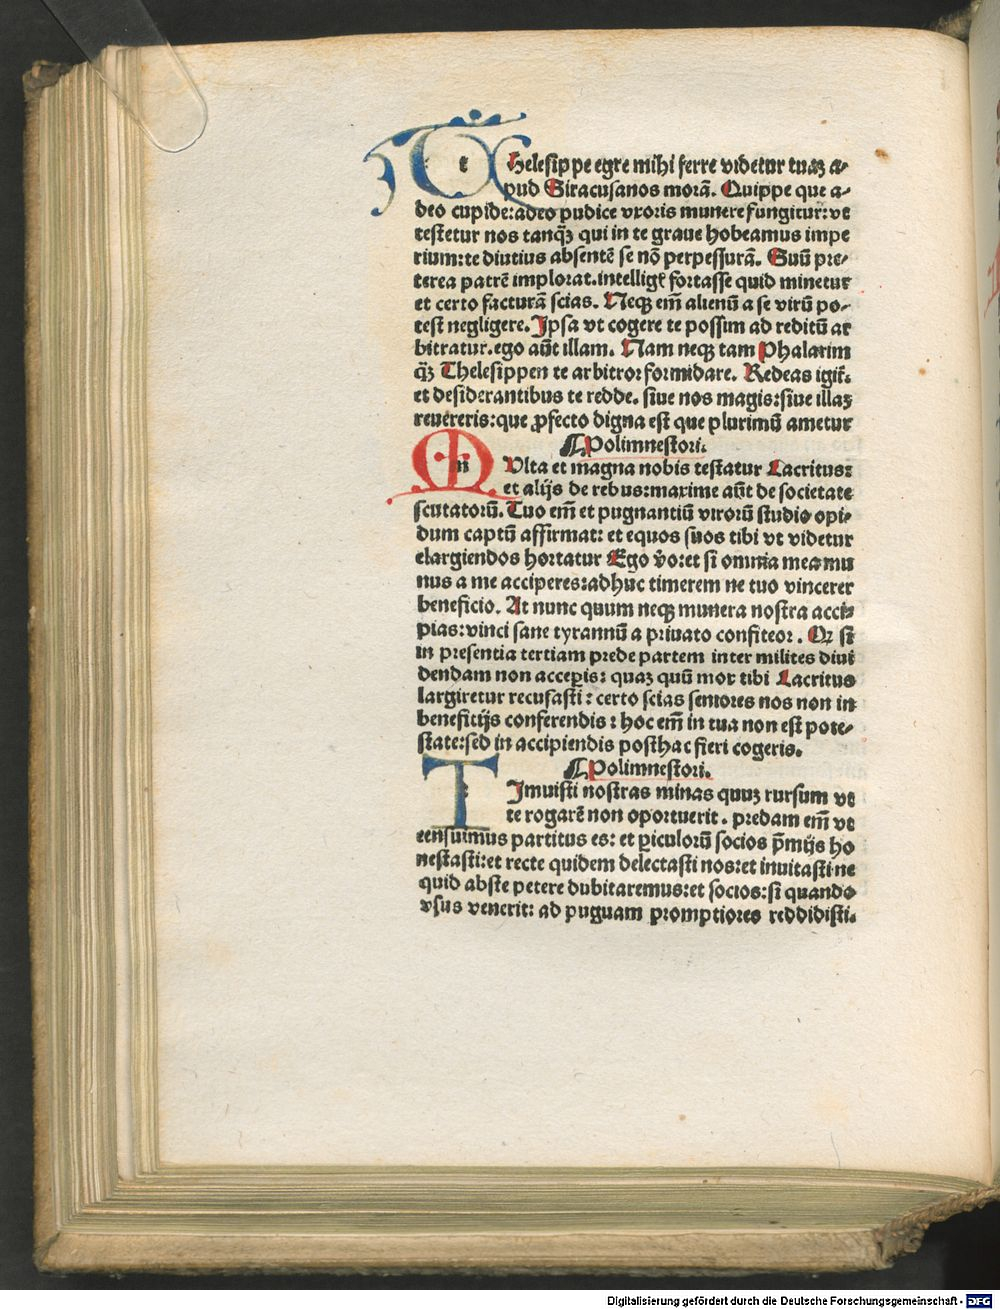 Thelesippe egre mihi ferre videtur tuaꝫ a-
pud Siracusanos morā. Quippe que a-
deo cupide: adeo pudice vxoris munere fungitur: vt
testetur nos tanqȝ qui in te graue hobeamus impe
rium: te diutius absentē se nō perpessurā. Suū pre-
terea patrē implorat. intelligꝭ fortasse quid minetur
et certo facturā scias. Neqꝫ em̄ alienū a se virū po-
test negligere. Ipsa vt cogere te possim ad reditū ar
bitratur. ego aūt illam. Nam neqꝫ tam Phalarim
qȝ Thelesippen te arbitror formidare. Redeas igit̄.
et desiderantibus te redde. siue nos magis: siue illaꝫ
reuereris: que ꝓfecto digna est que plurimū ametur
¶ Polimnestori.
mUlta et magna nobis testatur Lacritus:
et alijs de rebus: maxime aūt de societate
scutatorū. Tuo em̄ et pugnantiū virorū studio opi-
dum captū affirmat: et equos suos tibi vt videtur
elargiendos hortatur Ego v̄o: et si omnia mea mu
nus a me acciperes: adhuc timerem ne tuo vincerer
beneficio. At nunc quum neqꝫ munera nostra acci-
pias: vinci sane tyrannū a priuato confiteor. Qꝛ si
in presentia tertiam prede partem inter milites diui
dendam non acceꝑis: quaꝫ quū mox tibi Lacritus
largiretur recusasti: certo scias seniores nos non in
benefitijs conferendis: hoc em̄ in tua non est pote-
state: sed in accipiendis posthac fieri cogeris.
¶ Polimnestori.
TImuisti nostras minas quuꝫ rursum vt
te rogarē non oportuerit. predam em̄ vt
censuimus partitus es: et ꝑiculorū socios p̄mijs ho
nestasti: et recte quidem delectasti nos: et inuitasti ne
quid abste petere dubitaremus: et socios: si quando
vsus venerit: ad puguam promptiores reddidisti.
Digitalisierung gefördert durch die Deutsche Forschungsgemeinschaft - DFG